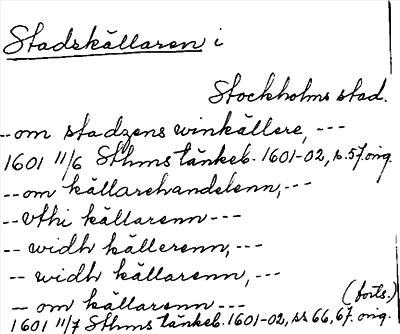 Stadskällaren i
Stockholms stad.
-- om stadzens winkällere, ---
1601 11/6 Sthms tänkeb. 1601-02, s. 57. orig.
-- om källarehandelenn, ---
-- vthi källarenn ---
-- widh källerenn, ---
-- widh källarenn, ---
-- om källarenn --- (forts.)
1601 11/7 Sthms tänkeb. 1601-02, ss 66, 67. orig.